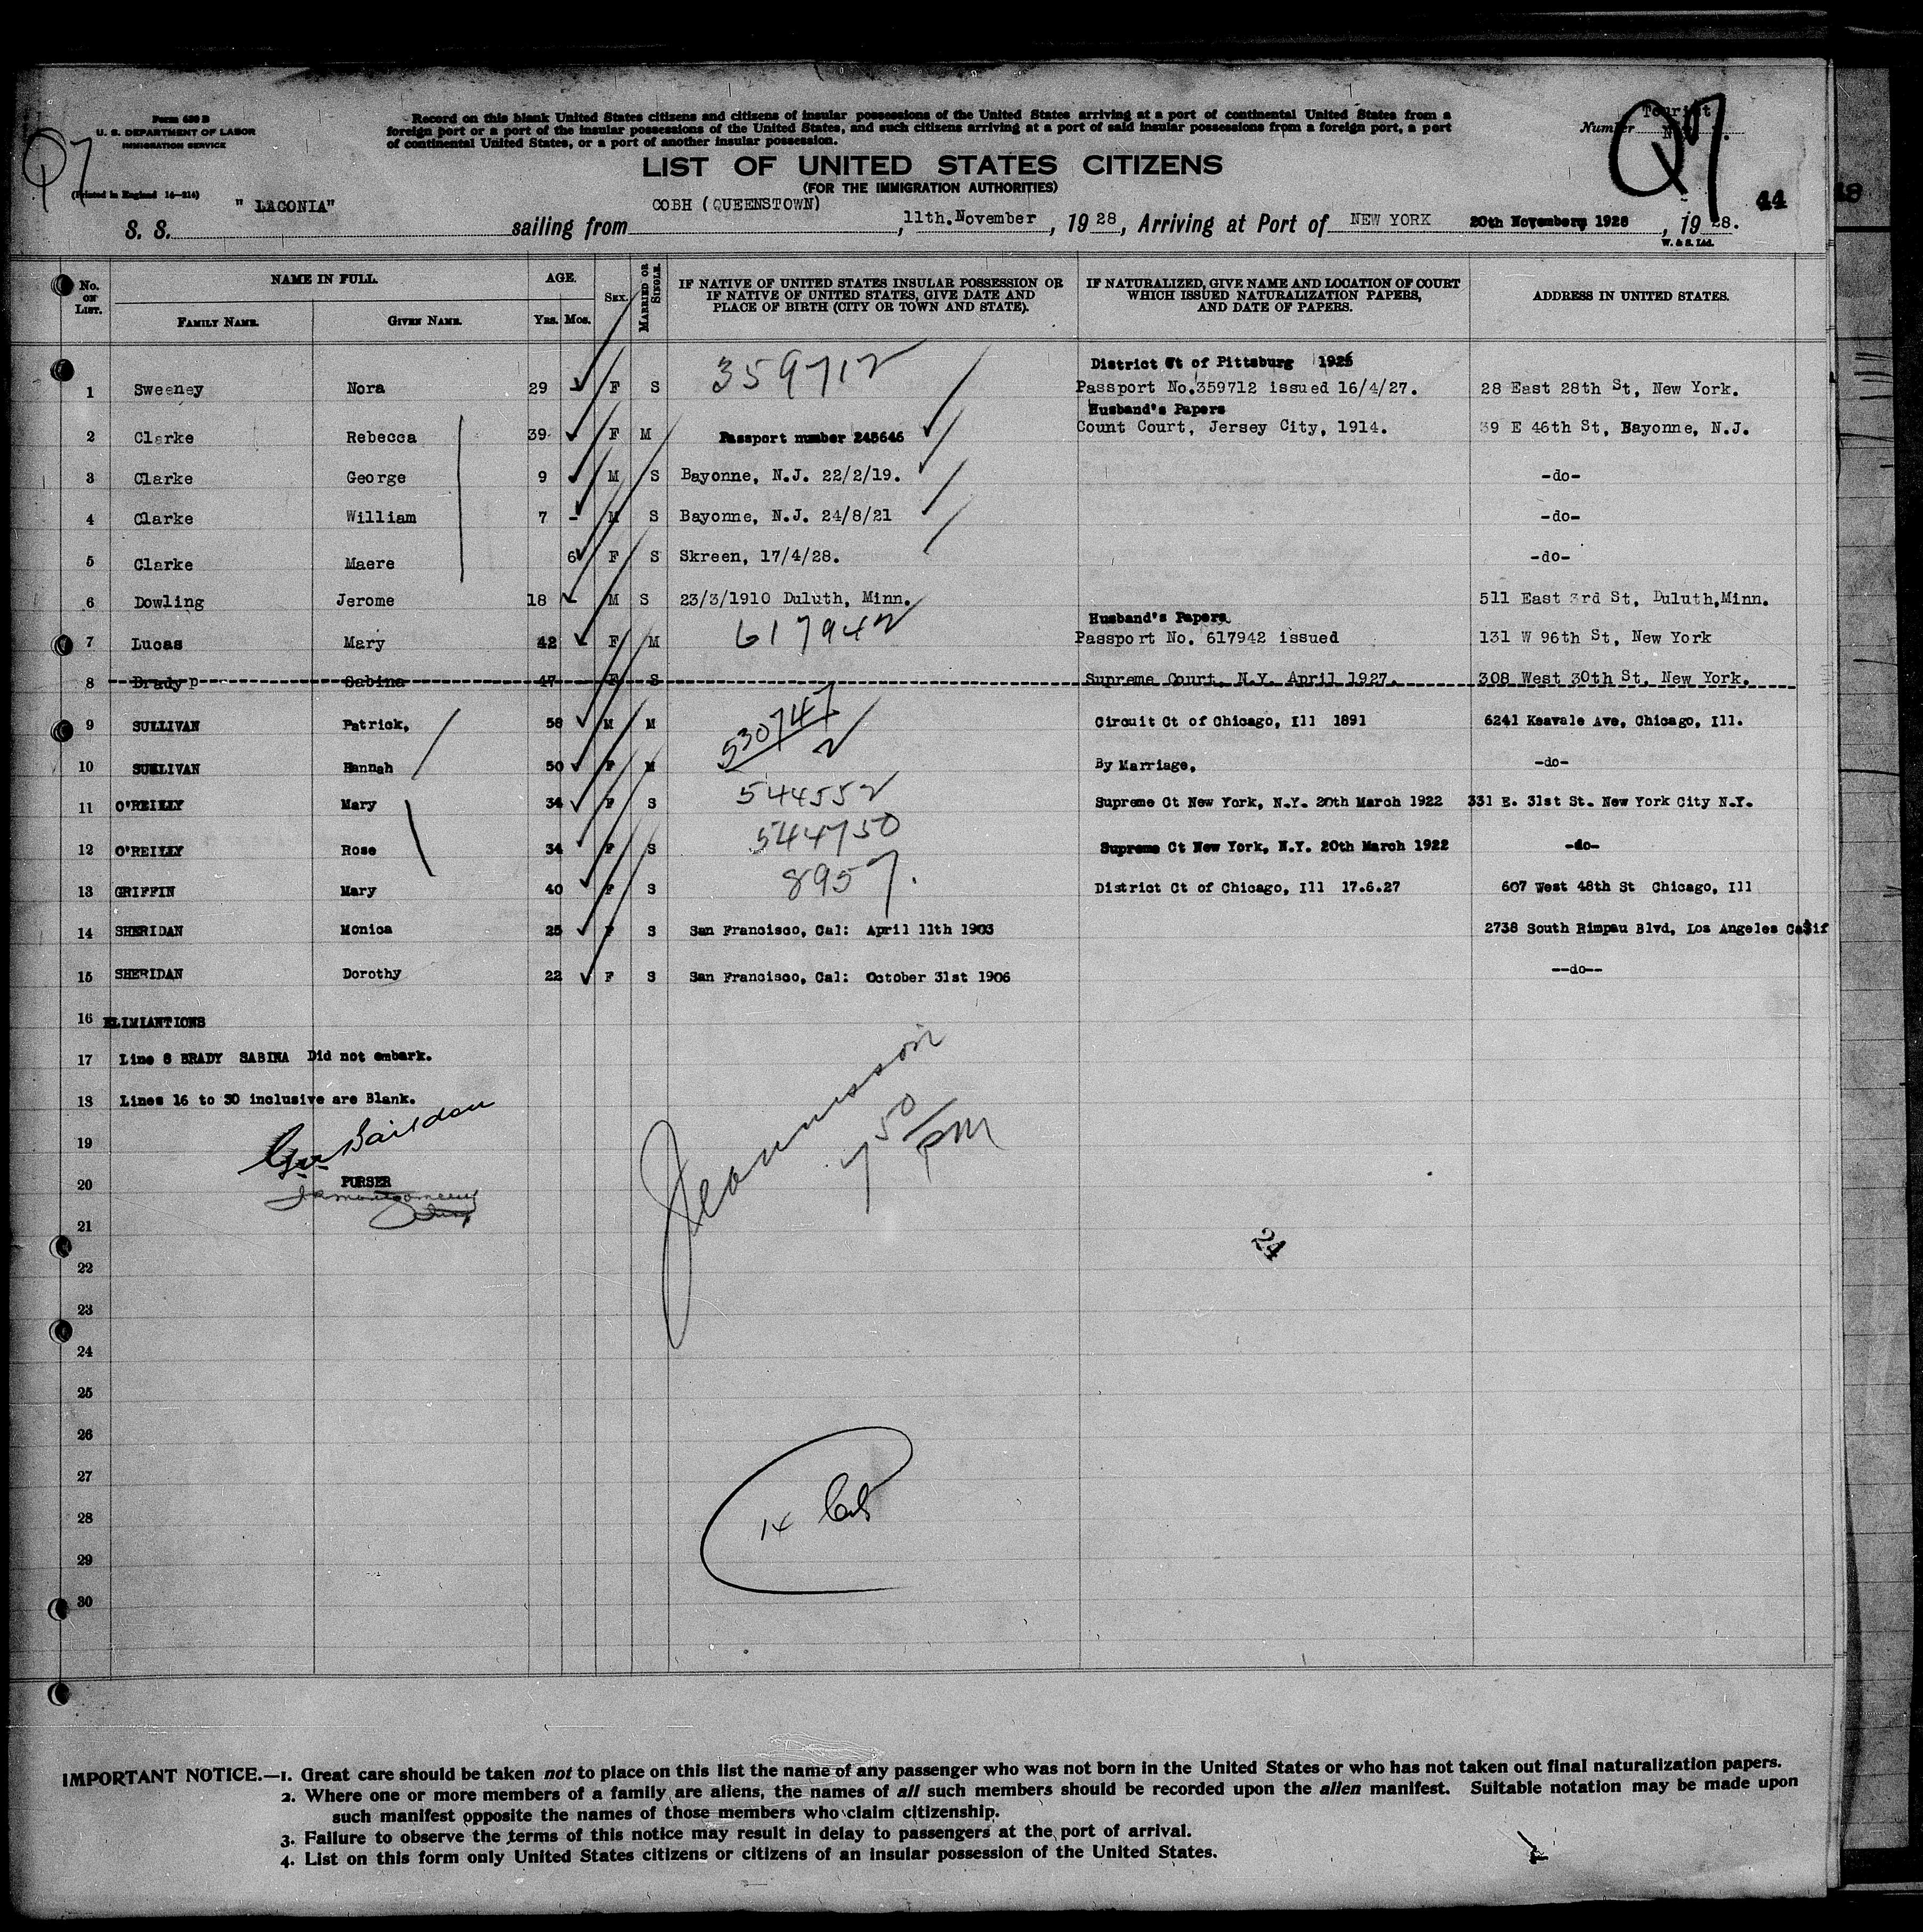 Form 630 B
U. S. DEPARTMENT OF LABOR
IMMIGRATION SERVICE
(Printed in England 14—214)
Q7
Record on this blank United States citizens and citizens of insular possessions of the United States arriving at a port of continental United States from a
foreign port or a port of the insular possessions of the United States, and such citizens arriving at a port of said insular possessions from a foreign port, a port
of continental United States, or a port of another insular possession.
Tourist
Number
Q7
44
18
LIST OF UNITED STATES CITIZENS
(FOR THE IMMIGRATION AUTHORITIES)
S. S. " LACONIA" sailing from COBH (QUEENSTOWN), 11th.November, 1928, Arriving at Port of NEW YORK 20th November, 1928, 1928.
W. & S. Ltd.
No. on List. NAME IN FULL. AGE. Sex. Married or Single. IF NATIVE OF UNITED STATES INSULAR POSSESSION OR IF NATIVE OF UNITED STATES, GIVE DATE AND PLACE OF BIRTH (CITY OR TOWN AND STATE). IF NATURALIZED, GIVE NAME AND LOCATION OF COURT WHICH ISSUED NATURALIZATION PAPERS, AND DATE OF PAPERS. ADDRESS IN UNITED STATES.
Family Name. Given Name. Yrs. Mos.
District Ct of Pittsburg 1925
1 Sweeney Nora 29 F S 359712 Passport No.359712 issued 16/4/27. 28 East 28th St, New York.
Husband's Papers
2 Clarke Rebecca 39 F M Passport number 245646 Count Court, Jersey City, 1914. 39 E 46th St, Bayonne, N.J.
3 Clarke George 9 M S Bayonne, N.J. 22/2/19. -do-
4 Clarke William 7 - M S Bayonne, N.J. 24/8/21 -do-
5 Clarke Maere 6 F S Skreen, 17/4/28. -do-
6 Dowling Jerome 18 M S 23/3/1910 Duluth, Minn. 511 East 3rd St, Duluth,Minn.
Husband's Papers
7 Lucas Mary 42 F M 617942 Passport No. 617942 issued 131 W 96th St, New York
8 Brady Sabina 47 F S Supreme Court, N.Y. April 1927. 308 West 30th St, New York.
9 SULLIVAN Patrick, 58 M M 530747 Circuit Ct of Chicago, Ill 1891 6241 Keavale Ave, Chicago, Ill.
10 SULLIVAN Hannah 50 F M 2 By Marriage, -do-
11 O'REILLY Mary 34 F S 544552 Supreme Ct New York, N.Y. 20th March 1922 331 E. 31st St. New York City N.Y.
12 O'REILLY Rose 34 F S 544750 Supreme Ct New York, N.Y. 20th March 1922 -do-
13 GRIFFIN Mary 40 F S 8957. District Ct of Chicago, Ill 17.6.27 607 West 48th St Chicago, Ill
14 SHERIDAN Monica 25 F S San Francisco, Cal: April 11th 1903 2738 South Rimpau Blvd, Los Angeles Calif
15 SHERIDAN Dorothy 22 F S San Francisco, Cal: October 31st 1906 --do--
16 ELIMIANTIONS
17 Line 8 BRADY SABINA Did not embark.
18 Lines 16 to 30 inclusive are Blank.
19
20 PURSER
7 50 pm
21
24
22
23
24
25
26
27
28 14
29
30
IMPORTANT NOTICE.—1. Great care should be taken not to place on this list the name of any passenger who was not born in the United States or who has not taken out final naturalization papers.
2. Where one or more members of a family are aliens, the names of all such members should be recorded upon the alien manifest. Suitable notation may be made upon
such manifest opposite the names of those members who claim citizenship.
3. Failure to observe the terms of this notice may result in delay to passengers at the port of arrival.
4. List on this form only United States citizens or citizens of an insular possession of the United States.